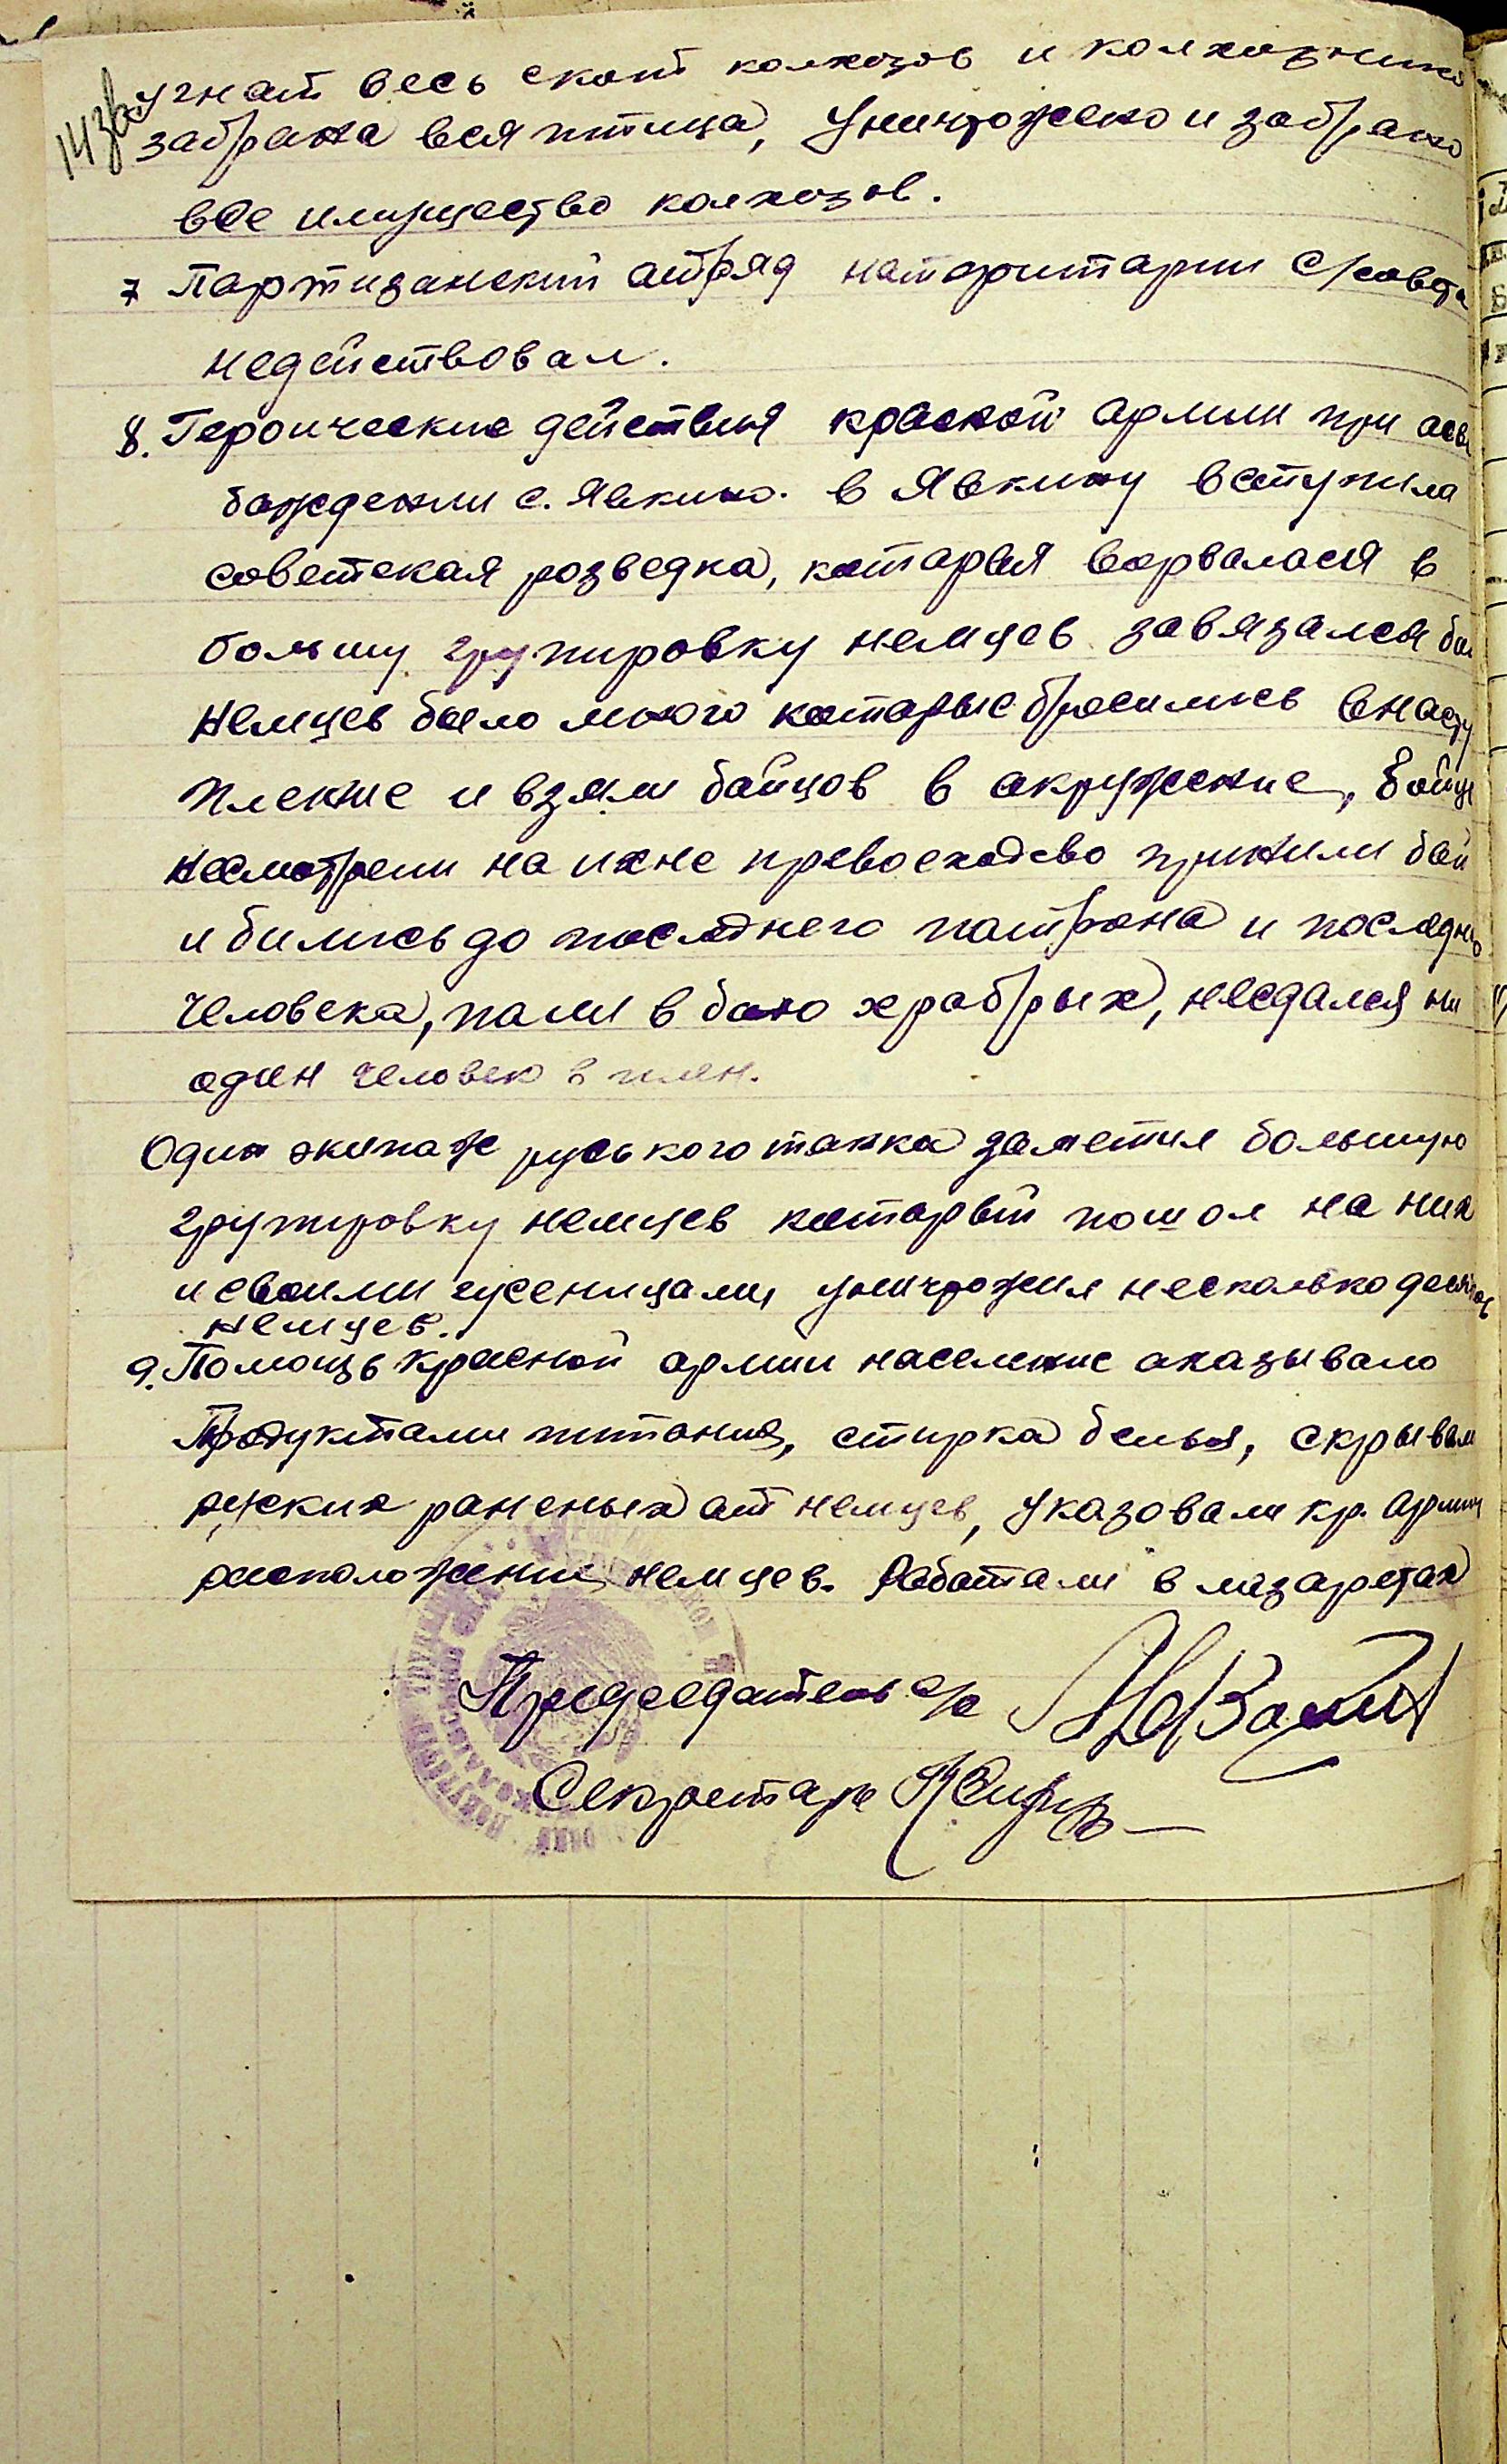 143зв
угнат весь скот колхозов и колхозника
забрана вся птица, уничтожено и забрано
все имущество колхозов.
7 Партизанский атряд натеритарии с/совета
недействовал.
8. Героические действия красной армии при асво
бождении с. Явкино. в Явкину вступила
советская розведка, катарая ворвалася в
большу групировку немцев завязался бой
Немцев было много катарые бросились внасту
пление и взяли байцов в акружение, бойцы
несмотрели на ихне превосходсво приняли бой
и бились до последнего патрона и последнего
человека, пали в баю храбрых, несдался ни
один человек в плен.
Один экипаж руського танка заметил большую
групировку немцев катарый пошол на них
и своими гусеницами уничтожил несколько десятков
немцев.
9. Помощь красной армии население аказывало
Продуктами питания, стирка белья, скрывали
руских раненых ат немцев, указовали кр. армии
расположения немцев. Работали в лазаретах
Председатель с/с
Секретарь